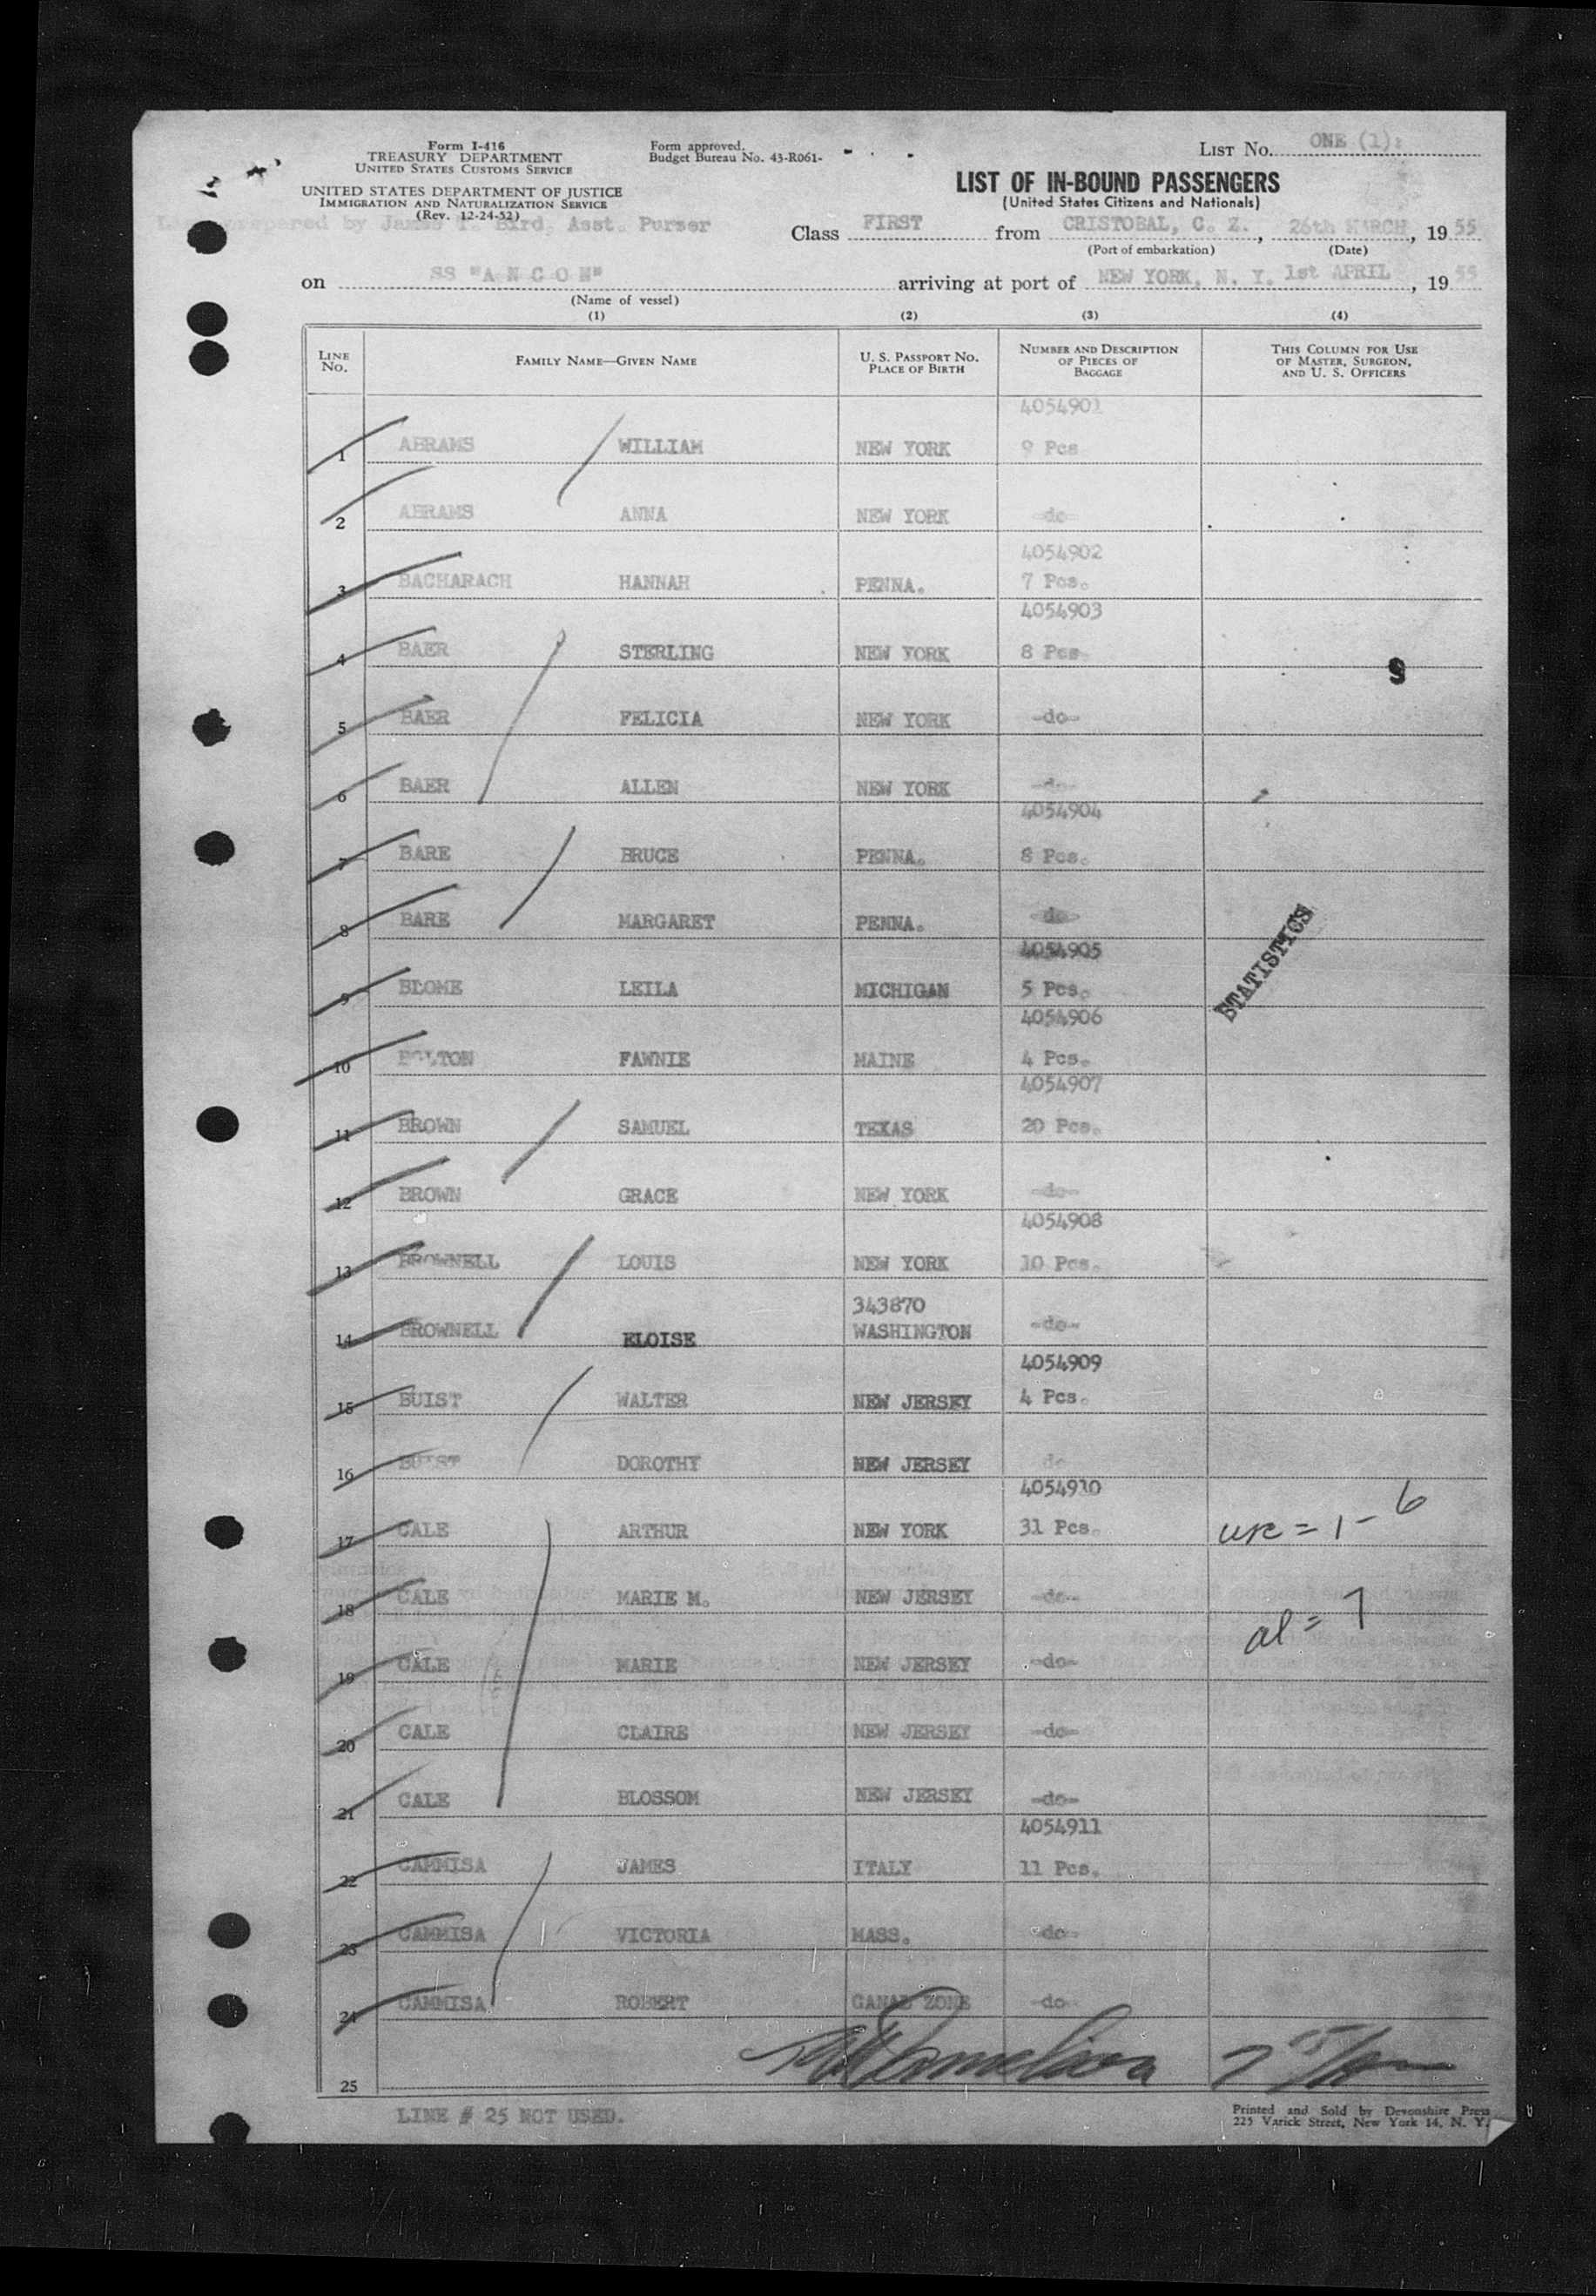 Form I-416
TREASURY DEPARTMENT
UNITED STATES CUSTOMS SERVICE
UNITED STATES DEPARTMENT OF JUSTICE
IMMIGRATION AND NATURALIZATION SERVICE
(Rev. 12-24-52)
Form approved.
Budget Bureau No. 43-R061-
LIST No. ONE (1):
LIST OF IN-BOUND PASSENGERS
(United States Citizens and Nationals)
List prepared by James T. Bird, Asst. Purser
Class FIRST from CRISTOBAL, C. Z., 26th MARCH, 19 55
(Port of embarkation) (Date)
on SS "A N C O N" arriving at port of NEW YORK, N. Y. 1st APRIL, 19 55
(Name of vessel)
(1) (2) (3) (4)
LINE No. FAMILY NAME—GIVEN NAME U. S. PASSPORT No. PLACE OF BIRTH NUMBER AND DESCRIPTION OF PIECES OF BAGGAGE THIS COLUMN FOR USE OF MASTER, SURGEON, AND U. S. OFFICERS
4054901
1 ABRAMS WILLIAM NEW YORK 9 Pcs
2 ABRAMS ANNA NEW YORK -do-
4054902
3 BACHARACH HANNAH PENNA. 7 Pcs.
4054903
4 BAER STERLING NEW YORK 8 Pcs
9
5 BAER FELICIA NEW YORK -do-
6 BAER ALLEN NEW YORK -do-
4054904
7 BARE BRUCE PENNA. 8 Pcs.
8 BARE MARGARET PENNA. -do-
4054905
STATISTICS
9 BLOME LEILA MICHIGAN 5 Pcs.
4054906
10 BOLTON FAWNIE MAINE 4 Pcs.
4054907
11 BROWN SAMUEL TEXAS 20 Pcs.
12 BROWN GRACE NEW YORK -do-
4054908
13 BROWNELL LOUIS NEW YORK 10 Pcs.
343870
14 BROWNELL ELOISE WASHINGTON -do-
4054909
15 BUIST WALTER NEW JERSEY 4 Pcs.
16 BUIST DOROTHY NEW JERSEY do
4054910
17 CALE ARTHUR NEW YORK 31 Pcs. usc = 1 - 6
18 CALE MARIE M. NEW JERSEY -do-
al = 7
19 CALE MARIE NEW JERSEY -do-
20 CALE CLAIRE NEW JERSEY -do-
21 CALE BLOSSOM NEW JERSEY -do-
4054911
22 CAMMISA JAMES ITALY 11 Pcs.
23 CAMMISA VICTORIA MASS. -do-
24 CAMMISA ROBERT CANAL ZONE -do-
25
LINE # 25 NOT USED.
Printed and Sold by Devonshire Press
225 Varick Street, New York 14, N. Y.